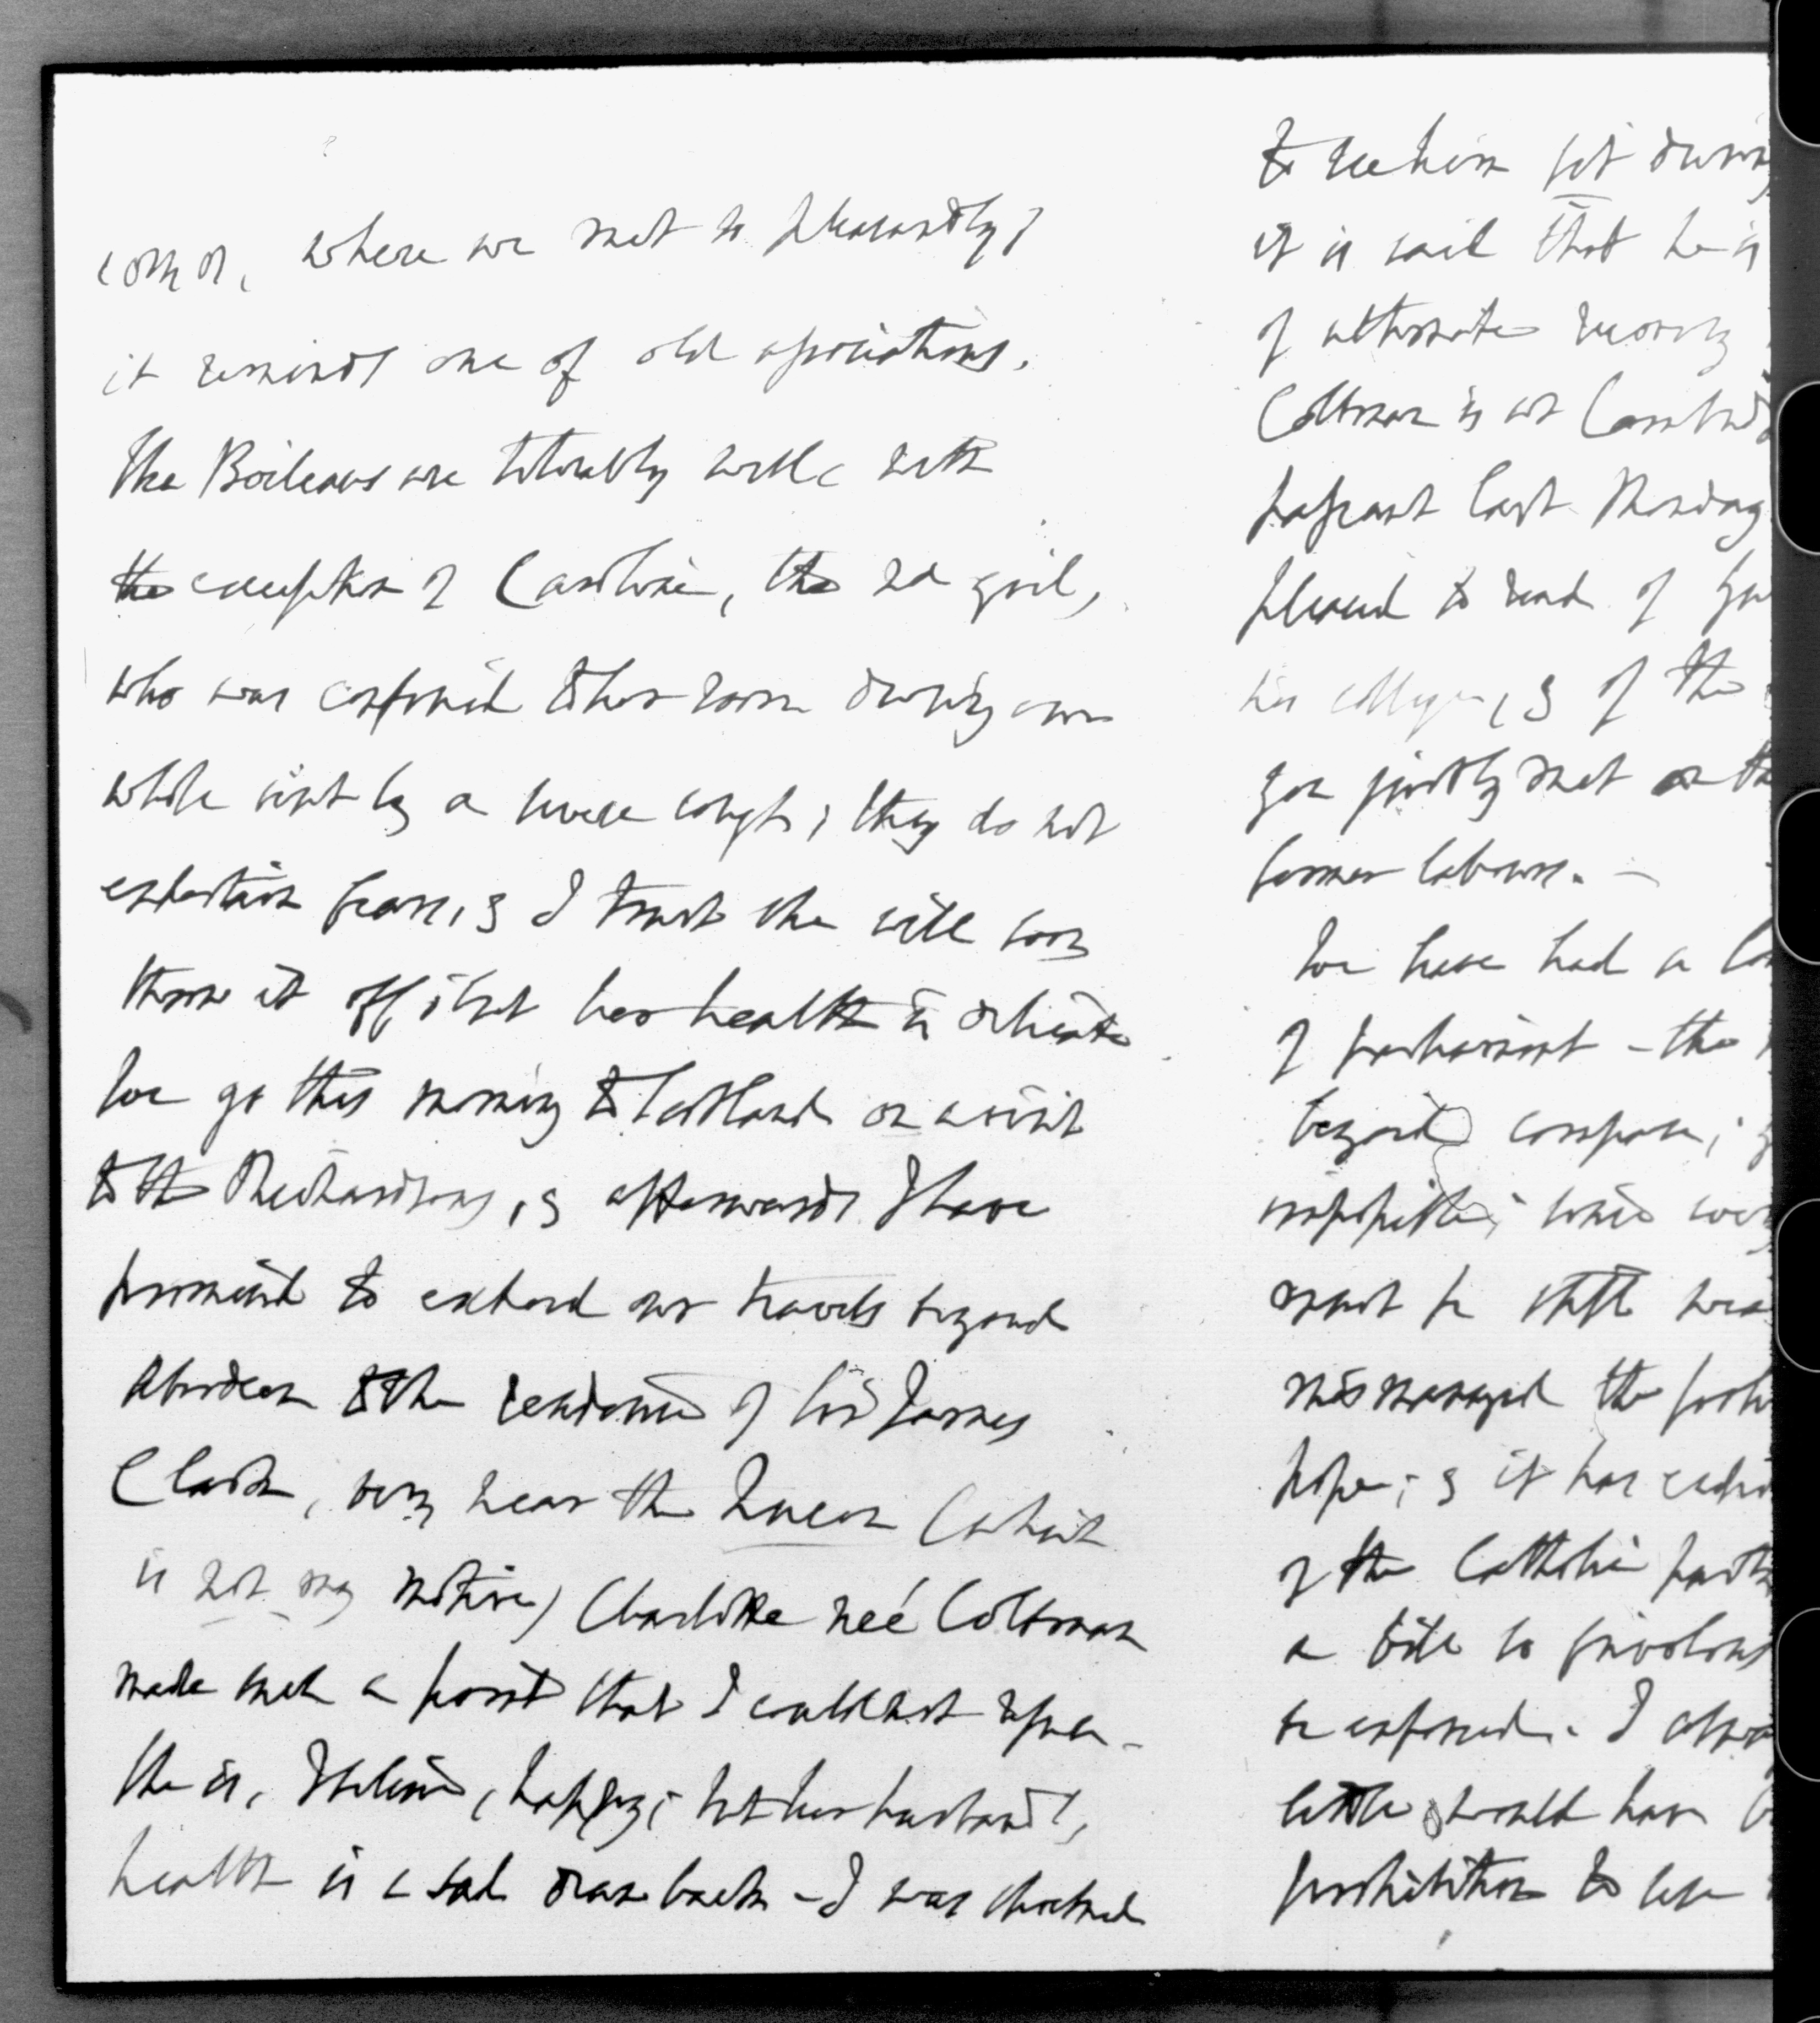 where we met so pleasantly;
it reminds one of old associations.
The Boileaus are tolerably well, with
the exception of Caroline, the 2d girl,
who was confined to her room during our
whole visit by a severe cough; they do not
entertain fears, & I trust she will soon
throw it off; but her health is delicate
We go this morning to Scotland on a visit
to the Richardsons, & afterwards I have
promised to extend our travels beyond
Aberdeen to the residence of Sir James
Clark, very near the Queen (which
is not my motive) Charlotte neé Coltman
made such a point that I could not refuse -
She is, I believe, happy; but her husband's,
health is a sad draw back - I was shocked
to see him
it is said that he is
of alternate
Coltman is at
last Monday
pleased to read of
his college, & of the
you justly met on
former labours. -
We have had a
of parliament - the
beyond compare;
must be still
mismanaged the
hope; & it has
of the Catholic
a bill so frivolous
be enforced. I
little would have
prohibition to